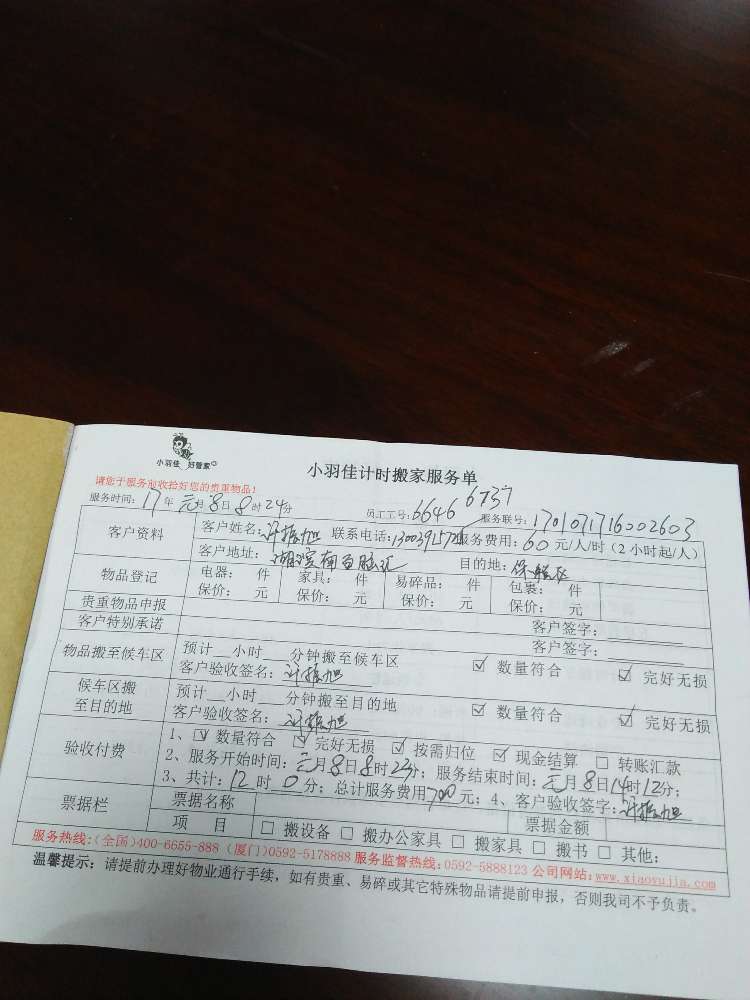 小羽佳 好管家
小羽佳计时搬家服务单
请您于服务前收拾好您的贵重物品！
服务时间：17年 元月8日8时24分 员工工号：6646 6737 服务联号：1701071716002603
客户资料 客户姓名：许振旭 联系电话： 服务费用：60元/人/时（2小时起/人）
客户地址： 目的地：保税区
物品登记 电器： 件 家具： 件 易碎品： 件 包裹： 件
保价： 元 保价： 元 保价： 元 保价： 元
贵重物品申报
客户特别承诺 客户签字：
客户签字：
物品搬至候车区 预计__小时___分钟搬至候车区 ☑ 数量符合 ☑ 完好无损
客户验收签名：许振旭
候车区搬至目的地 预计__小时___分钟搬至目的地 ☑ 数量符合 ☑ 完好无损
客户验收签名：许振旭
验收付费 1、☑ 数量符合 ☑ 完好无损 ☑ 按需归位 ☑ 现金结算 □ 转账汇款
2、服务开始时间：元月8日8时23分；服务结束时间：元月8日14时12分；
3、共计：12时0分；总计服务费用700元；4、客户验收签字：许振旭
票据栏 票据名称 票据金额
项 目 □ 搬设备 □ 搬办公家具 □ 搬家具 □ 搬书 □ 其他：
服务热线：（全国）400-6655-888（厦门）0592-5178888 服务监督热线：0592-5888123 公司网站：www.xiaoyujia.com
温馨提示：请提前办理好物业通行手续，如有贵重、易碎或其它特殊物品请提前申报，否则我司不予负责。